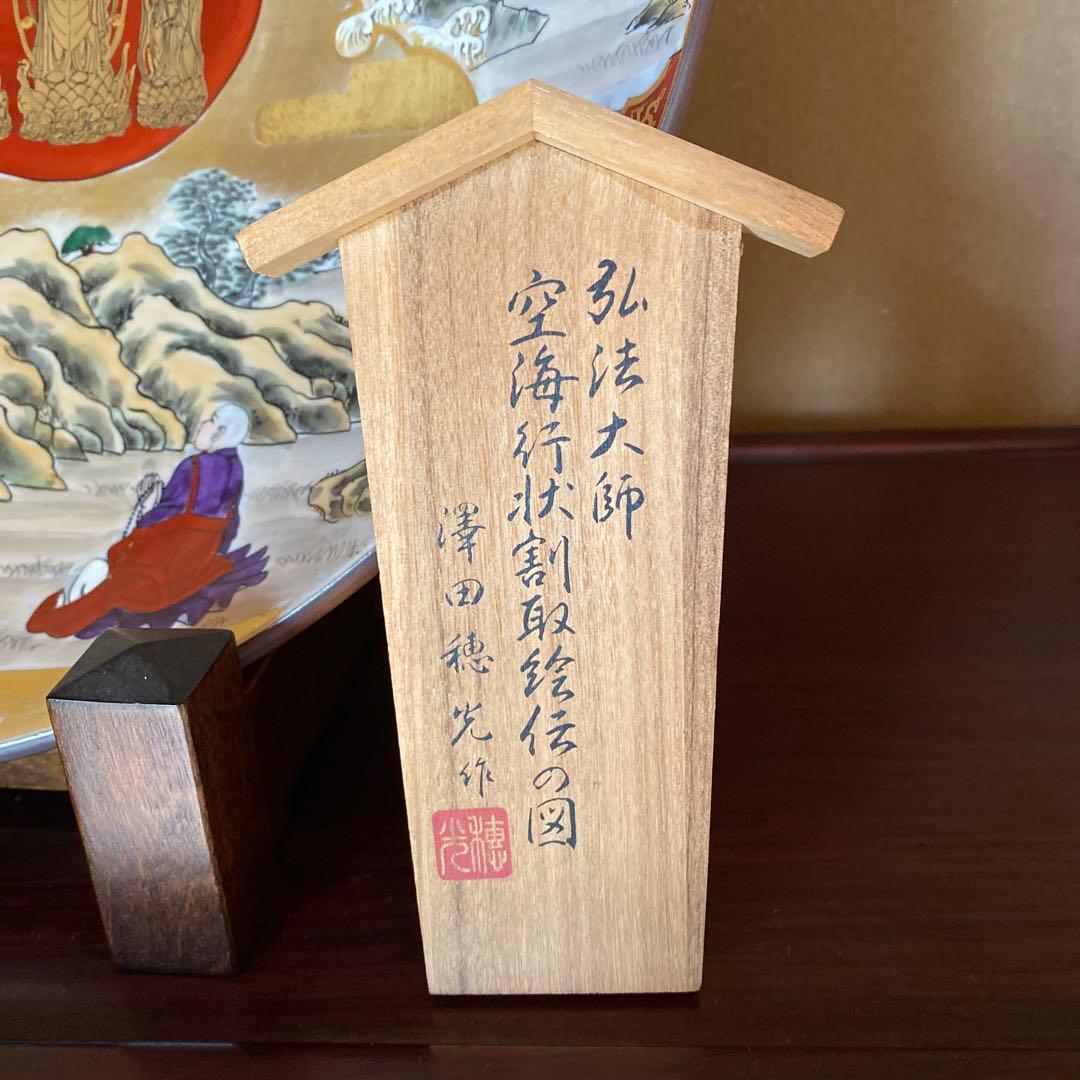 弘法大師
空海行状割取絵伝の図
澤田穂光作
穂光